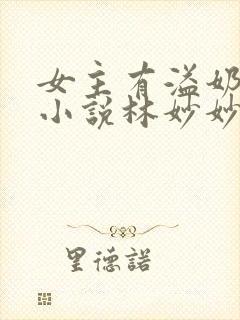 女主有溢奶
小说林妙妙
里德諾